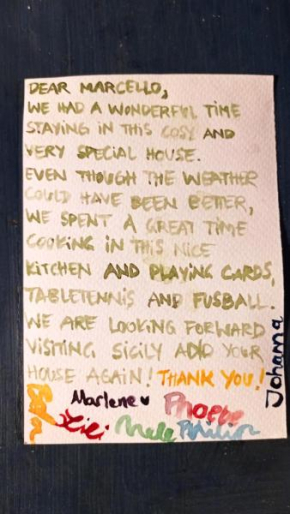 DEAR MARCELLO,
WE HAD A WONDERFUL TIME
STAYING IN THIS COSY AND
VERY SPECIAL HOUSE.
EVEN THOUGH THE WEATHER
COULD HAVE BEEN BETTER,
WE SPENT A GREAT TIME
COOKING IN THIS NICE
KITCHEN AND PLAYING CARDS,
TABLETENNIS AND FUSBALL.
WE ARE LOOKING FORWARD
VISITING SICILY AND YOUR
HOUSE AGAIN! THANK YOU!
Johanna
Marlene Phoebe